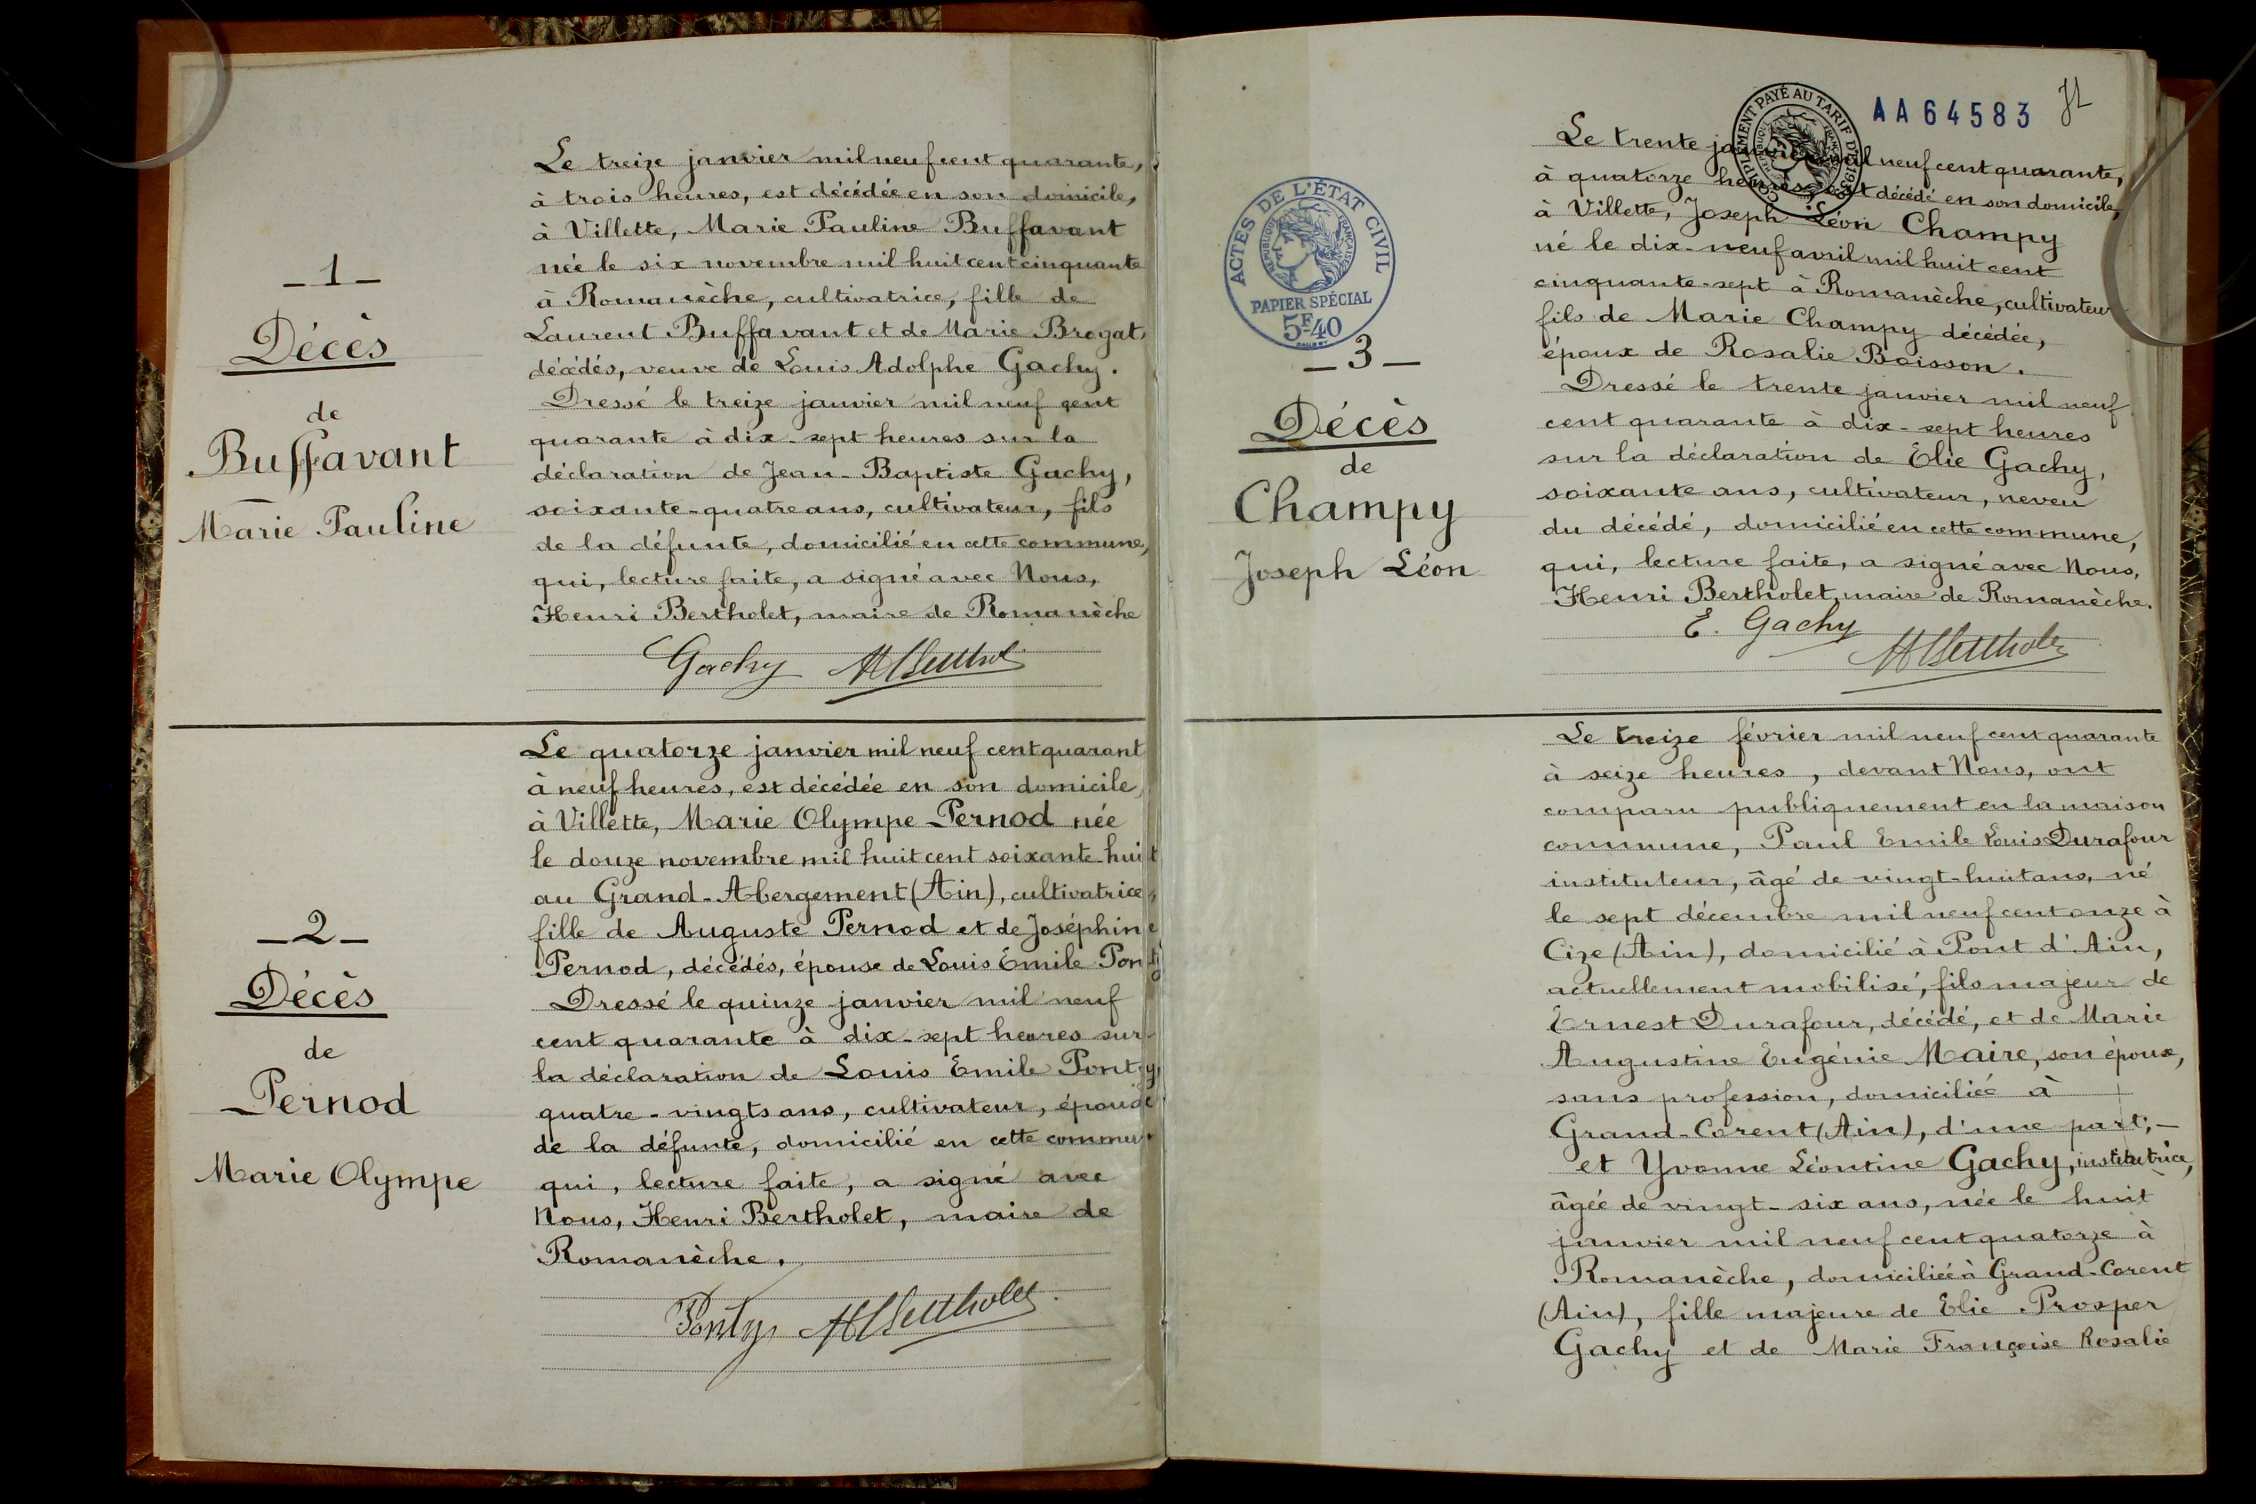 _ 1 _
Décès
de
Buffavant
Marie Pauline
Le treize janvier mil neuf cent quarante,
à trois heures, est décédée en son domicile,
à Villette, Marie Pauline Buffavant
née le six novembre mil huit cent cinquante
à Romanèche, cultivatrice, fille de
Laurent Buffavant et de Marie Brogat,
décédés, veuve de Louis Adolphe Gachy.
Dressé le treize janvier mil neuf cent
quarante à dix-sept heures sur la
déclaration de Jean-Baptiste Gachy,
soixante-quatre ans, cultivateur, fils
de la défunte, domicilié en cette commune,
qui, lecture faite, a signé avec Nous,
Henri Bertholet, maire de Romanèche
Gachy HBerthol
_ 2 _
Décès
de
Pernod
Marie Olympe
Le quatorze janvier mil neuf cent quarant
à neuf heures, est décédée en son domicile,
à Villette, Marie Olympe Pernod née
le douze novembre mil huit cent soixante-huit
au Grand-Abergement (Ain), cultivatrice,
fille de Auguste Pernod et de Joséphine
Pernod, décédés, épouse de Louis Emile Ponty
Dressé le quinze janvier mil neuf
cent quarante à dix-sept heures sur
la déclaration de Louis Emile Ponty,
quatre-vingts ans, cultivateur, épouse
de la défunte, domicilié en cette commu
qui, lecture faite, a signé avec
Nous, Henri Bertholet, maire de
Romanèche.
Ponty HBertholet
AA64583
COMPLÉMENT PAYÉ AU TARIF DE 193
RÉPUBLIQUE FRANÇAISE
ACTES DE L'ÉTAT CIVIL
RÉPUBLIQUE FRANÇAISE
PAPIER SPÉCIAL
5F40
_ 3 _
Décès
de
Champy
Joseph Léon
Le trente janvier mil neuf cent quarante,
à quatorze heures, est décédé en son domicile,
à Villette, Joseph Léon Champy
né le dix-neuf avril mil huit cent
cinquante-sept à Romanèche, cultivateur
fils de Marie Champy décédée,
époux de Rosalie Boisson.
Dressé le trente janvier mil neuf
cent quarante à dix-sept heures
sur la déclaration de Elie Gachy,
soixante ans, cultivateur, neveu
du décédé, domicilié en cette commune,
qui, lecture faite, a signé avec Nous,
Henri Bertholet, maire de Romanèche.
E. Gachy
HBertholet
Le treize février mil neuf cent quarante
à seize heures, devant Nous, ont
comparu publiquement en la maison
commune, Paul Emile Louis Durafour
instituteur, âgé de vingt-huit ans, né
le sept décembre mil neuf cent onze à
Cize (Ain), domicilié à Pont d'Ain,
actuellement mobilisé, fils majeur de
Ernest Durafour, décédé, et de Marie
Augustine Eugénie Maire, son épouse,
sans profession, domiciliée à
Grand-Corent (Ain), d'une part, _
et Yvonne Léontine Gachy, institutrice,
âgée de vingt-six ans, née le huit
janvier mil neuf cent quatorze à
Romanèche, domiciliée à Grand-Corent
(Ain), fille majeure de Elie Prosper
Gachy et de Marie Françoise Rosalie